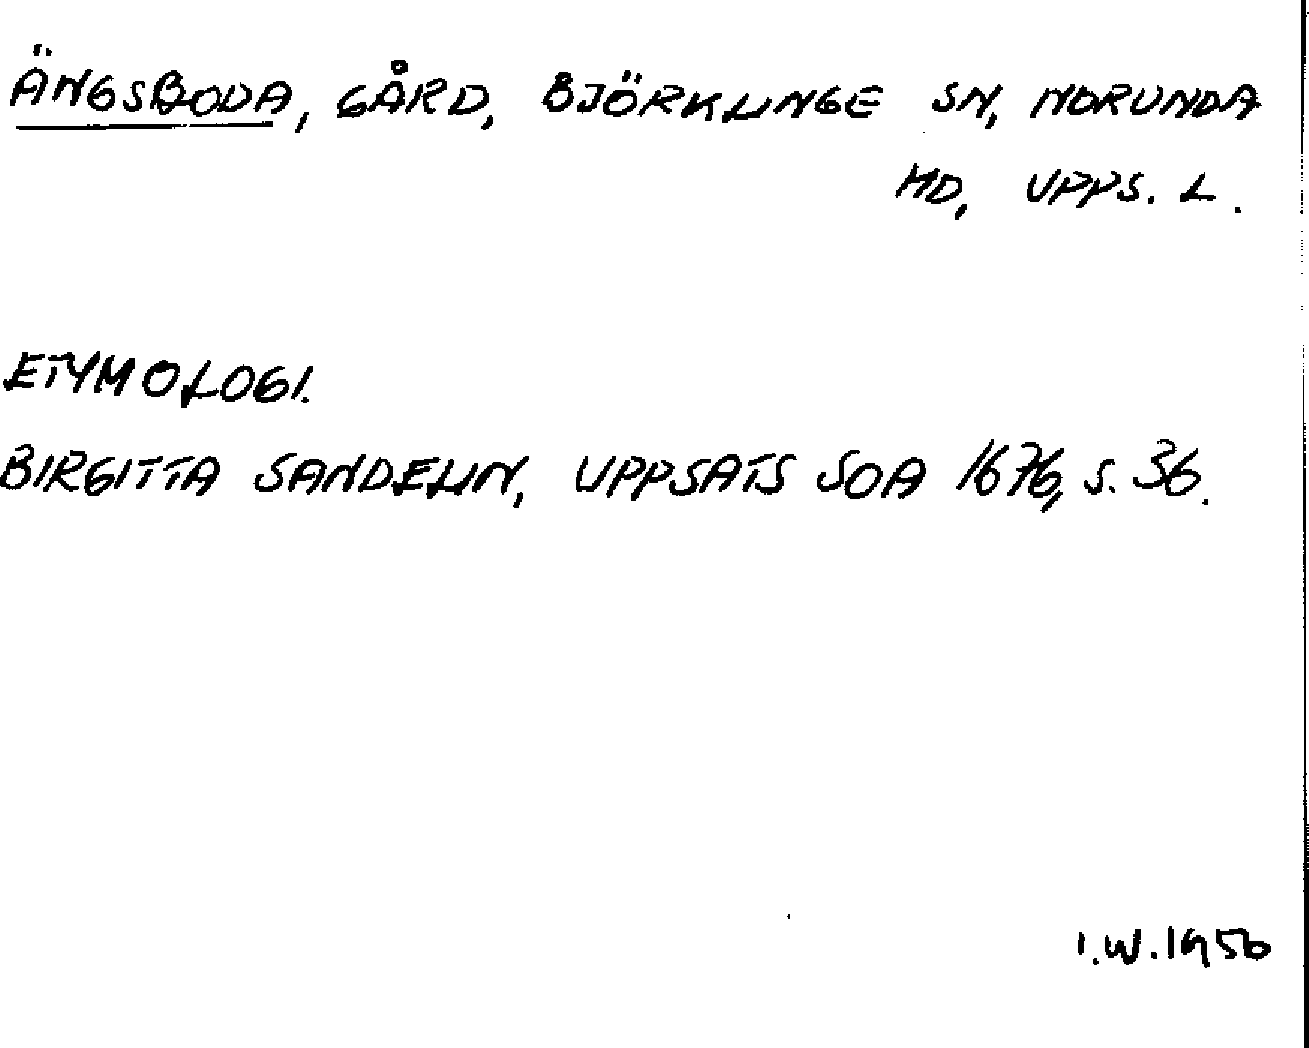 ÄNGSBODA, GÅRD, BJÖRKLINGE SN, NORUNDA
HD, UPPS. L.
ETYMOLOGI.
BIRGITTA SANDELIN, UPPSATS SOA 1676, S. 36.
I.W. 1956